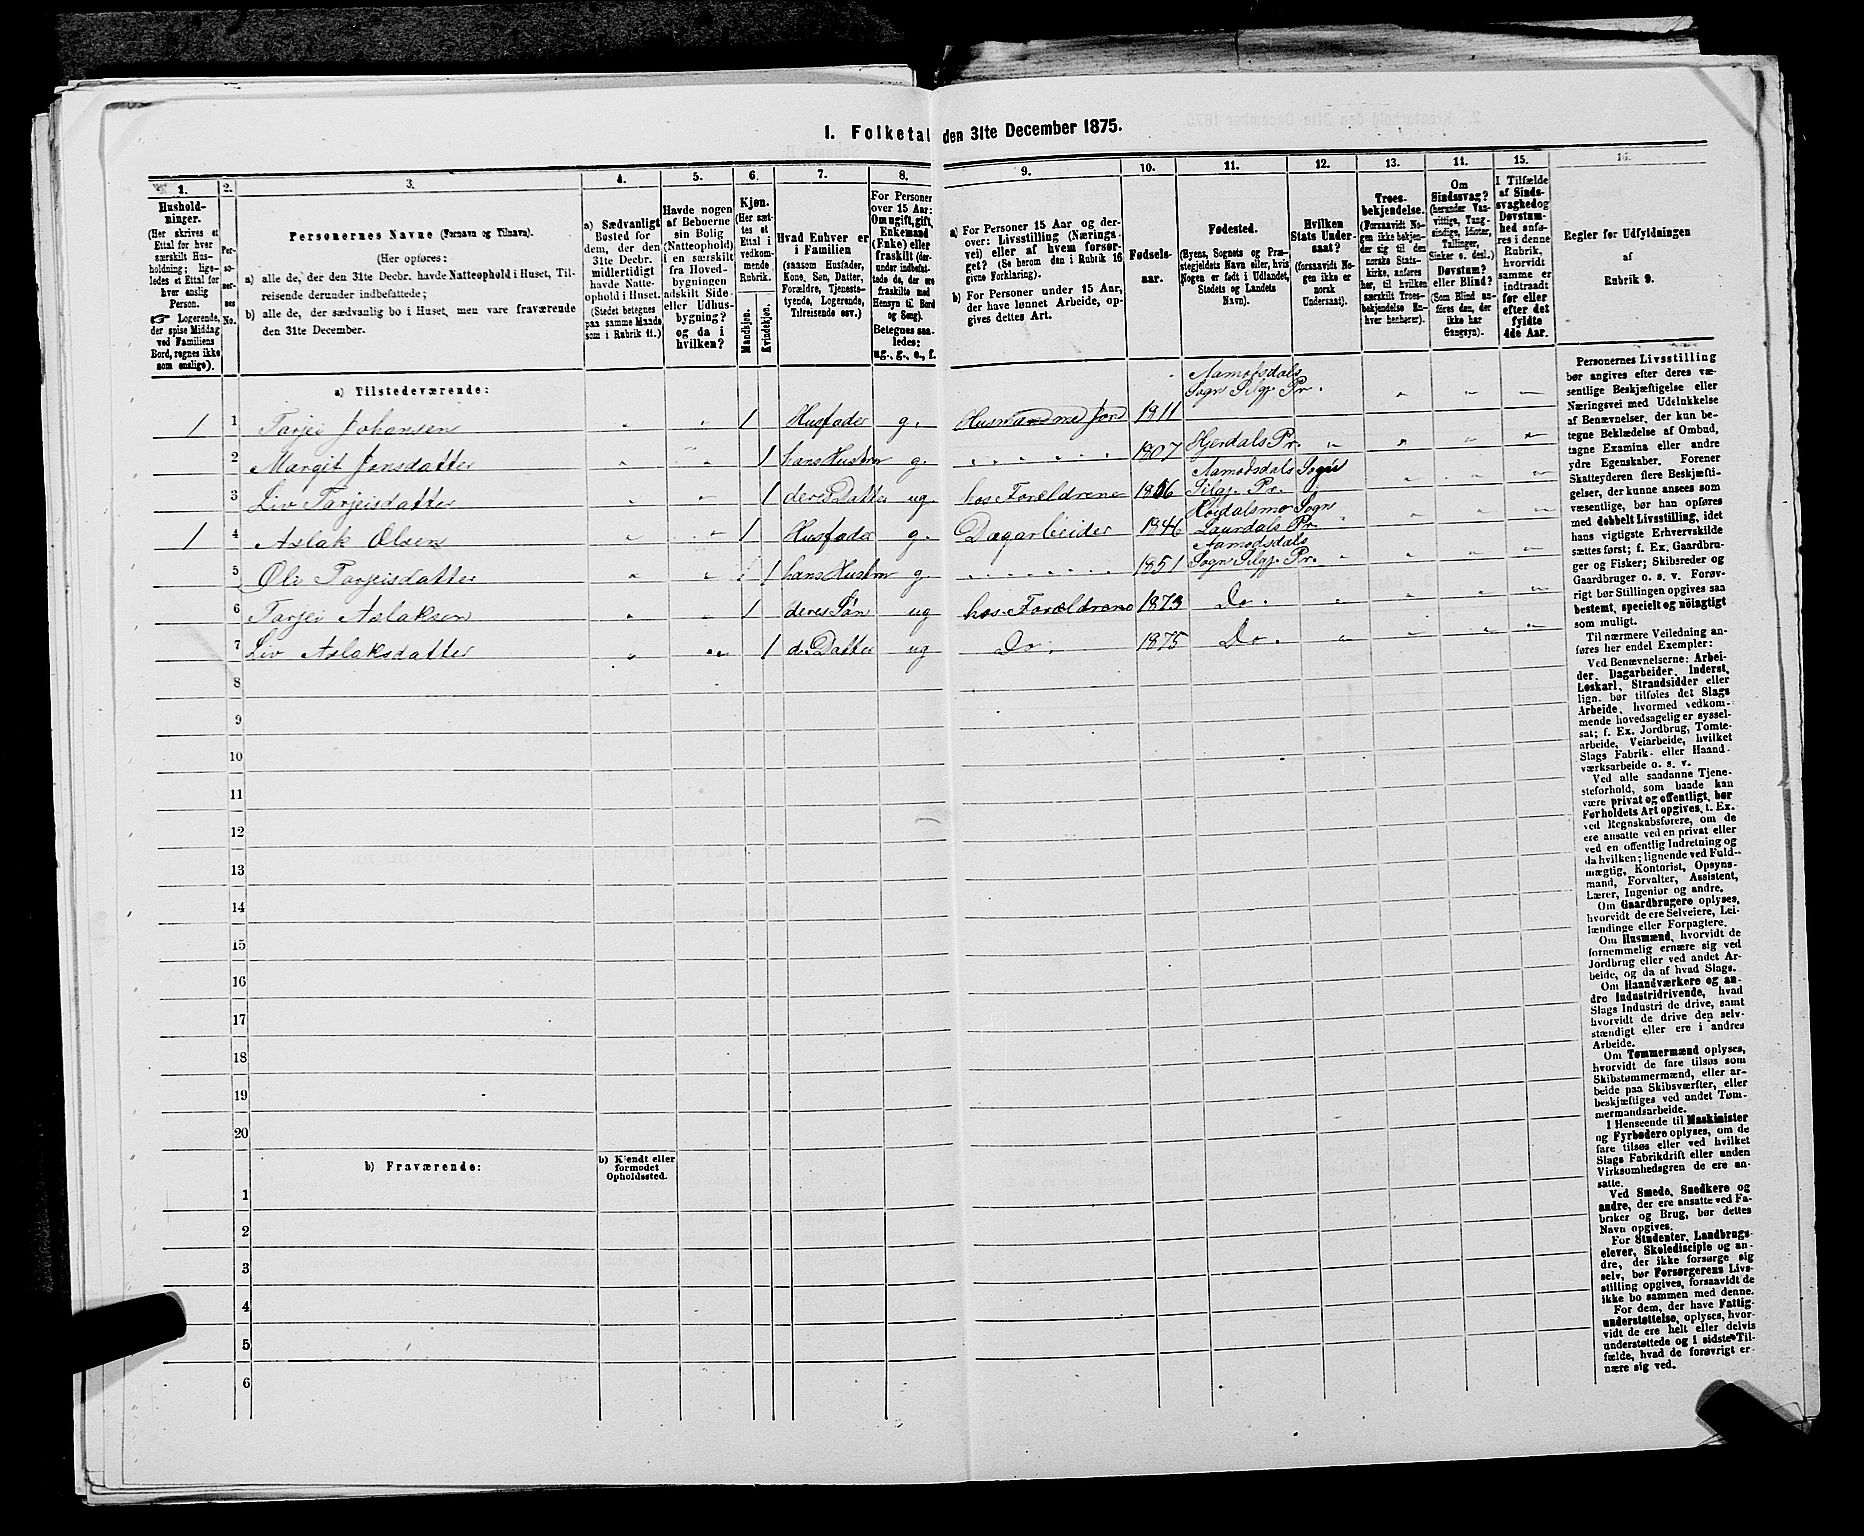 1. Folketal den 31te December 1875.
1. 2. 3. 4. 5. 6. 7. 8. 9. 10. 11. 12. 13. 14. 15. 16.
Hushold-
ninger.
(Her skrives et
Ettal for hver
særskilt Hus-
holdning; lige-
ledes et Ettal for
hver enslig
Person.
☞ Logerende,
der spise Middag
ved Familiens
Bord, regnes ikke
som enslige).
Per-
so-
ner-
nes
No.
Personernes Navne (Fornavn og Tilnavn).
(Her opføres:
a) alle de, der den 31te Decbr. havde Natteophold i Huset, Til-
reisende derunder indbefattede;
b) alle de, der sædvanlig bo i Huset, men vare fraværende
den 31te December.
a) Sædvanligt
Bosted for
dem, der den
31te Decbr.
midlertidigt
havde Natte-
ophold i Huset.
(Stedet betegnes
paa samme Maade
som i Rubrik 11.)
Havde nogen
af Beboerne
sin Bolig
(Natteophold)
i en særskilt
fra Hoved-
bygningen
adskilt Side-
eller Udhus-
bygning?
og da i
hvilken?
Kjøn.
(Her sæt-
tes et
Ettal i
vedkom-
mende
Rubrik.)
Mandkjøn.
Kvindekjøn.
Hvad Enhver er
i Familien
(saasom Husfader,
Kone, Søn, Datter,
Forældre, Tjeneste-
tyende, Logerende,
Tilreisende osv.)
For Personer
over 15 Aar:
Om ugift, gift,
Enkemand
(Enke) eller
fraskilt (der-
under indbefat-
tede de, der ere
fraskilte med
Hensyn til Bord
og Seng).
Betegnes saa-
ledes:
ug., g., e., f.
a) For Personer 15 Aar og der-
over: Livsstilling (Nærings-
vei) eller af hvem forsør-
get? (Se herom den i Rubrik 16
givne Forklaring).
b) For Personer under 15 Aar,
der have lønnet Arbeide, op-
gives dettes Art.
Fødsels-
aar.
Fødested.
(Byens, Sognets og Præ-
stegjeldets Navn eller, hvis
Nogen er født i Udlandet,
Stedets og Landets
Navn).
Hvilken
Stats Under-
saat?
(forsaavidt No-
gen ikke er
norsk
Undersaat).
Troes-
bekjendelse.
(Forsaavidt No-
gen ikke bekjen-
der sig til den
norske Stats-
kirke, anføres
her, til hvilken
særskilt Troes-
bekjendelse En-
hver henhører).
Om
Sindssvag?
(herunder Van-
vittige, Tung-
sindige, Idioter,
Tullinger,
Sinker o. desl.)
Døvstum?
eller Blind?
(Som Blind an-
føres den, der
ikke har
Gangsyn).
I Tilfælde
af Sinds-
svaghed og
Døvstum-
hed anfø-
res i denne
Rubrik,
hvorvidt
samme er
indtraadt
før eller
efter det
fyldte
4de Aar.
Regler for Udfyldningen
af
Rubrik 9.
a) Tilstedeværende:
Aamotsdals
1 1 Tarjei Johansen „ „ 1 Husfader g. Husmand med Jord 1811 Sogn Silgj. Pr. „ „ „
2 Margit Jonsdatter „ „ 1 hans Hustru g. „ „ „ „ „ „ 1807 Hjerdals Pr. „ „ „ „
Aamodsdals Sogn
3 Liv Tarjeisdatter „ „ 1 deres Datter ug. hos Forældrene Silgj. Pr. „ „ „
Høidalsmo Sogn
1 4 Aslak Olsen „ „ 1 Husfader g. Dagarbeider 1846 Laurdals Pr. „ „ „
Aamodsdals
5 Tarjeisdatter „ „ 1 hans Hustru g. „ „ „ „ „ „ 1851 Sogn Silgj. Pr. „ „ „ „
6 Tarjei Aslaksen „ „ 1 deres Søn ug hos Forældrene 1873 Do. „ „ „ „
7 Liv Aslaksdatter „ „ 1 d. Datter ug Do. 1875 Do. „ „ „ „
8
9
10
11
12
13
14
15
16
17
18
19
20
b) Fraværende: b) Kjendt eller
formodet
Opholdssted.
1
2
3
4
5
6
Personernes Livsstilling
bør angives efter deres væ-
sentlige Beskjæftigelse eller
Næringsvei med Udelukkelse
af Benævnelser, der kun be-
tegne Beklædelse af Ombud,
tagne Examina eller andre
ydre Egenskaber. Forener
Skatteyderen flere Beskjæfti-
gelser, der kunne ansees som
væsentlige, bør han opføres
med dobbelt Livsstilling, idet
hans vigtigste Erhvervskilde
sættes først; f. Ex. Gaardbru-
ger og Fisker; Skibsreder og
Gaardbruger o. s. v. Forøv-
rigt bør Stillingen opgives saa
bestemt, specielt og nøiagtigt
som muligt.
Til nærmere Veiledning an-
føres her endel Exempler:
Ved Benævnelserne: Arbei-
der, Dagarbeider, Inderst,
Løskarl, Strandsidder eller
lign. bør tilføies det Slags
Arbeide, hvormed vedkom-
mende hovedsagelig er syssel-
sat; f. Ex. Jordbrug, Tomte-
arbeide, Veiarbeide, hvilket
Slags Fabrik- eller Haand-
værksarbeide o. s. v.
Ved alle saadanne Tjene-
steforhold, som baade kan
være privat og offentligt, bør
Forholdets Art opgives, f. Ex.
ved Regnskabsførere, om de
ere ansatte ved en privat eller
ved en offentlig Indretning og
da hvilken; lignende ved Fuld-
mægtig, Kontorist, Opsyns-
mand, Forvalter, Assistent,
Lærer, Ingeniør og andre.
Om Gaardbrugere oplyses,
hvorvidt de ere Selveiere, Lei-
lændinge eller Forpagtere.
Om Husmænd, hvorvidt de
fornemmelig ernære sig ved
Jordbrug eller ved andet Ar-
beide, og da af hvad Slags.
Om Haandværkere og an-
dre Industridrivende, hvad
Slags Industri de drive, samt
hvorvidt de drive den selv-
stændigt eller ere i andres
Arbeide.
Om Tømmermænd oplyses,
hvorvidt de fare tilsøs som
Skibstømmermænd, eller ar-
beide paa Skibsværfter, eller
beskjæftiges ved andet Tøm-
mermandsarbeide.
I Henseende til Maskinister
og Fyrbødere oplyses, om de
fare tilsøs eller ved hvilket
Slags Fabrikdrift eller anden
Virksomhedsgren de ere an-
satte.
Ved Smede, Snedkere og
andre, der ere ansatte ved Fa-
briker og Brug, bør dettes
Navn opgives.
For Studenter, Landbrugs-
elever, Skoledisciple og an-
dre, der ikke forsørge sig
selv, bør Forsørgerens Livs-
stilling opgives, forsaavidt de
ikke bo sammen med denne.
For dem, der have Fattig-
understøttelse, oplyses, hvor-
vidt de ere helt eller delvis
understøttede og i sidste Til-
fælde, hvad de forøvrigt er-
nære sig ved.